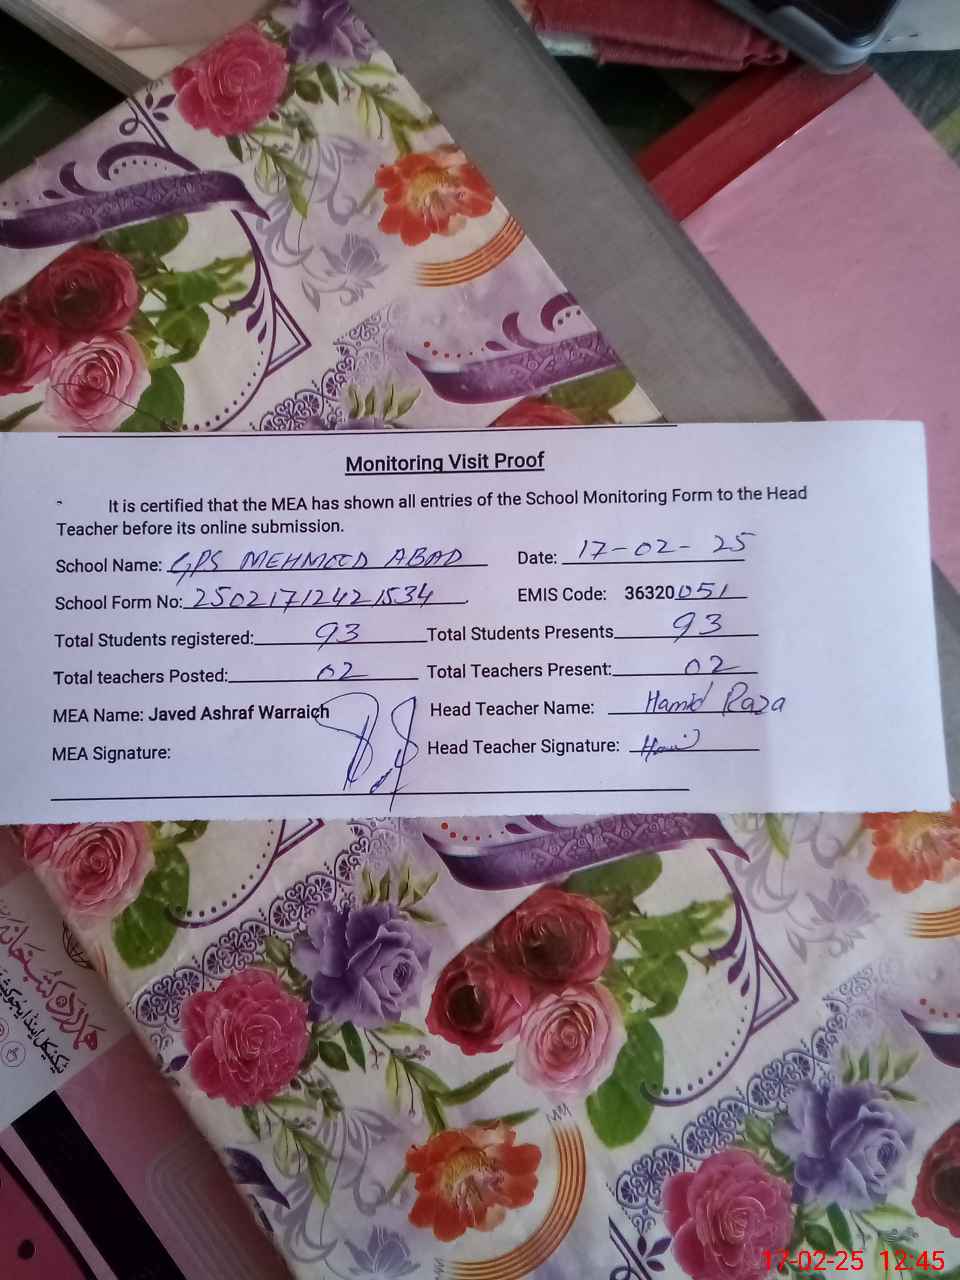 Monitoring Visit Proof
It is certified that the MEA has shown all entries of the School Monitoring Form to the Head
Teacher before its online submission.
School Name: GPS MEHMOOD ABAD Date: 17-02-25
School Form No: 25021712421534 EMIS Code: 36320051
Total Students registered: 93 Total Students Presents 93
Total teachers Posted: 02 Total Teachers Present: 02
MEA Name: Javed Ashraf Warraich Head Teacher Name: Hamid Raza
MEA Signature: Head Teacher Signature:
ہمدرد کتب خانہ
ٹیکنیکل اینڈ ایجوکیشنل
17-02-25 12:45